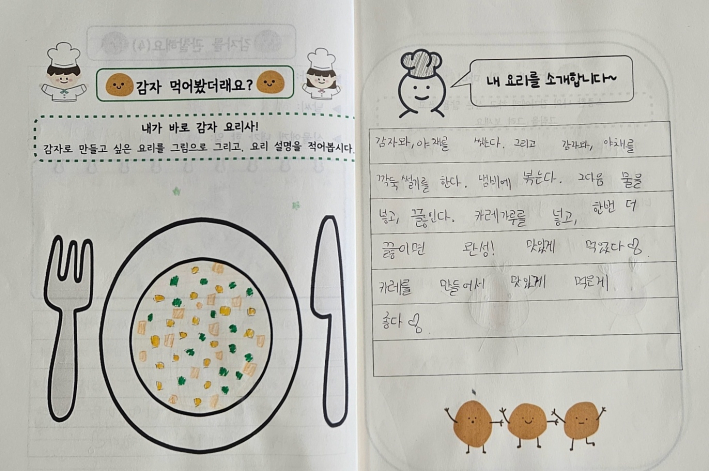 감자 먹어봤더래요?
내가 바로 감자 요리사!
감자로 만들고 싶은 요리를 그림으로 그리고, 요리 설명을 적어봅시다.
내 요리를 소개합니다~
감자와, 야채를 씻는다. 그리고 감자와, 야채를
깍둑썰기를 한다. 냄비에 볶는다. 그다음 물을
넣고, 끓인다. 카레가루를 넣고, 한번 더
끓이면 완성! 맛있게 먹었다
카레를 만들어서 맛있게 먹은게
좋다